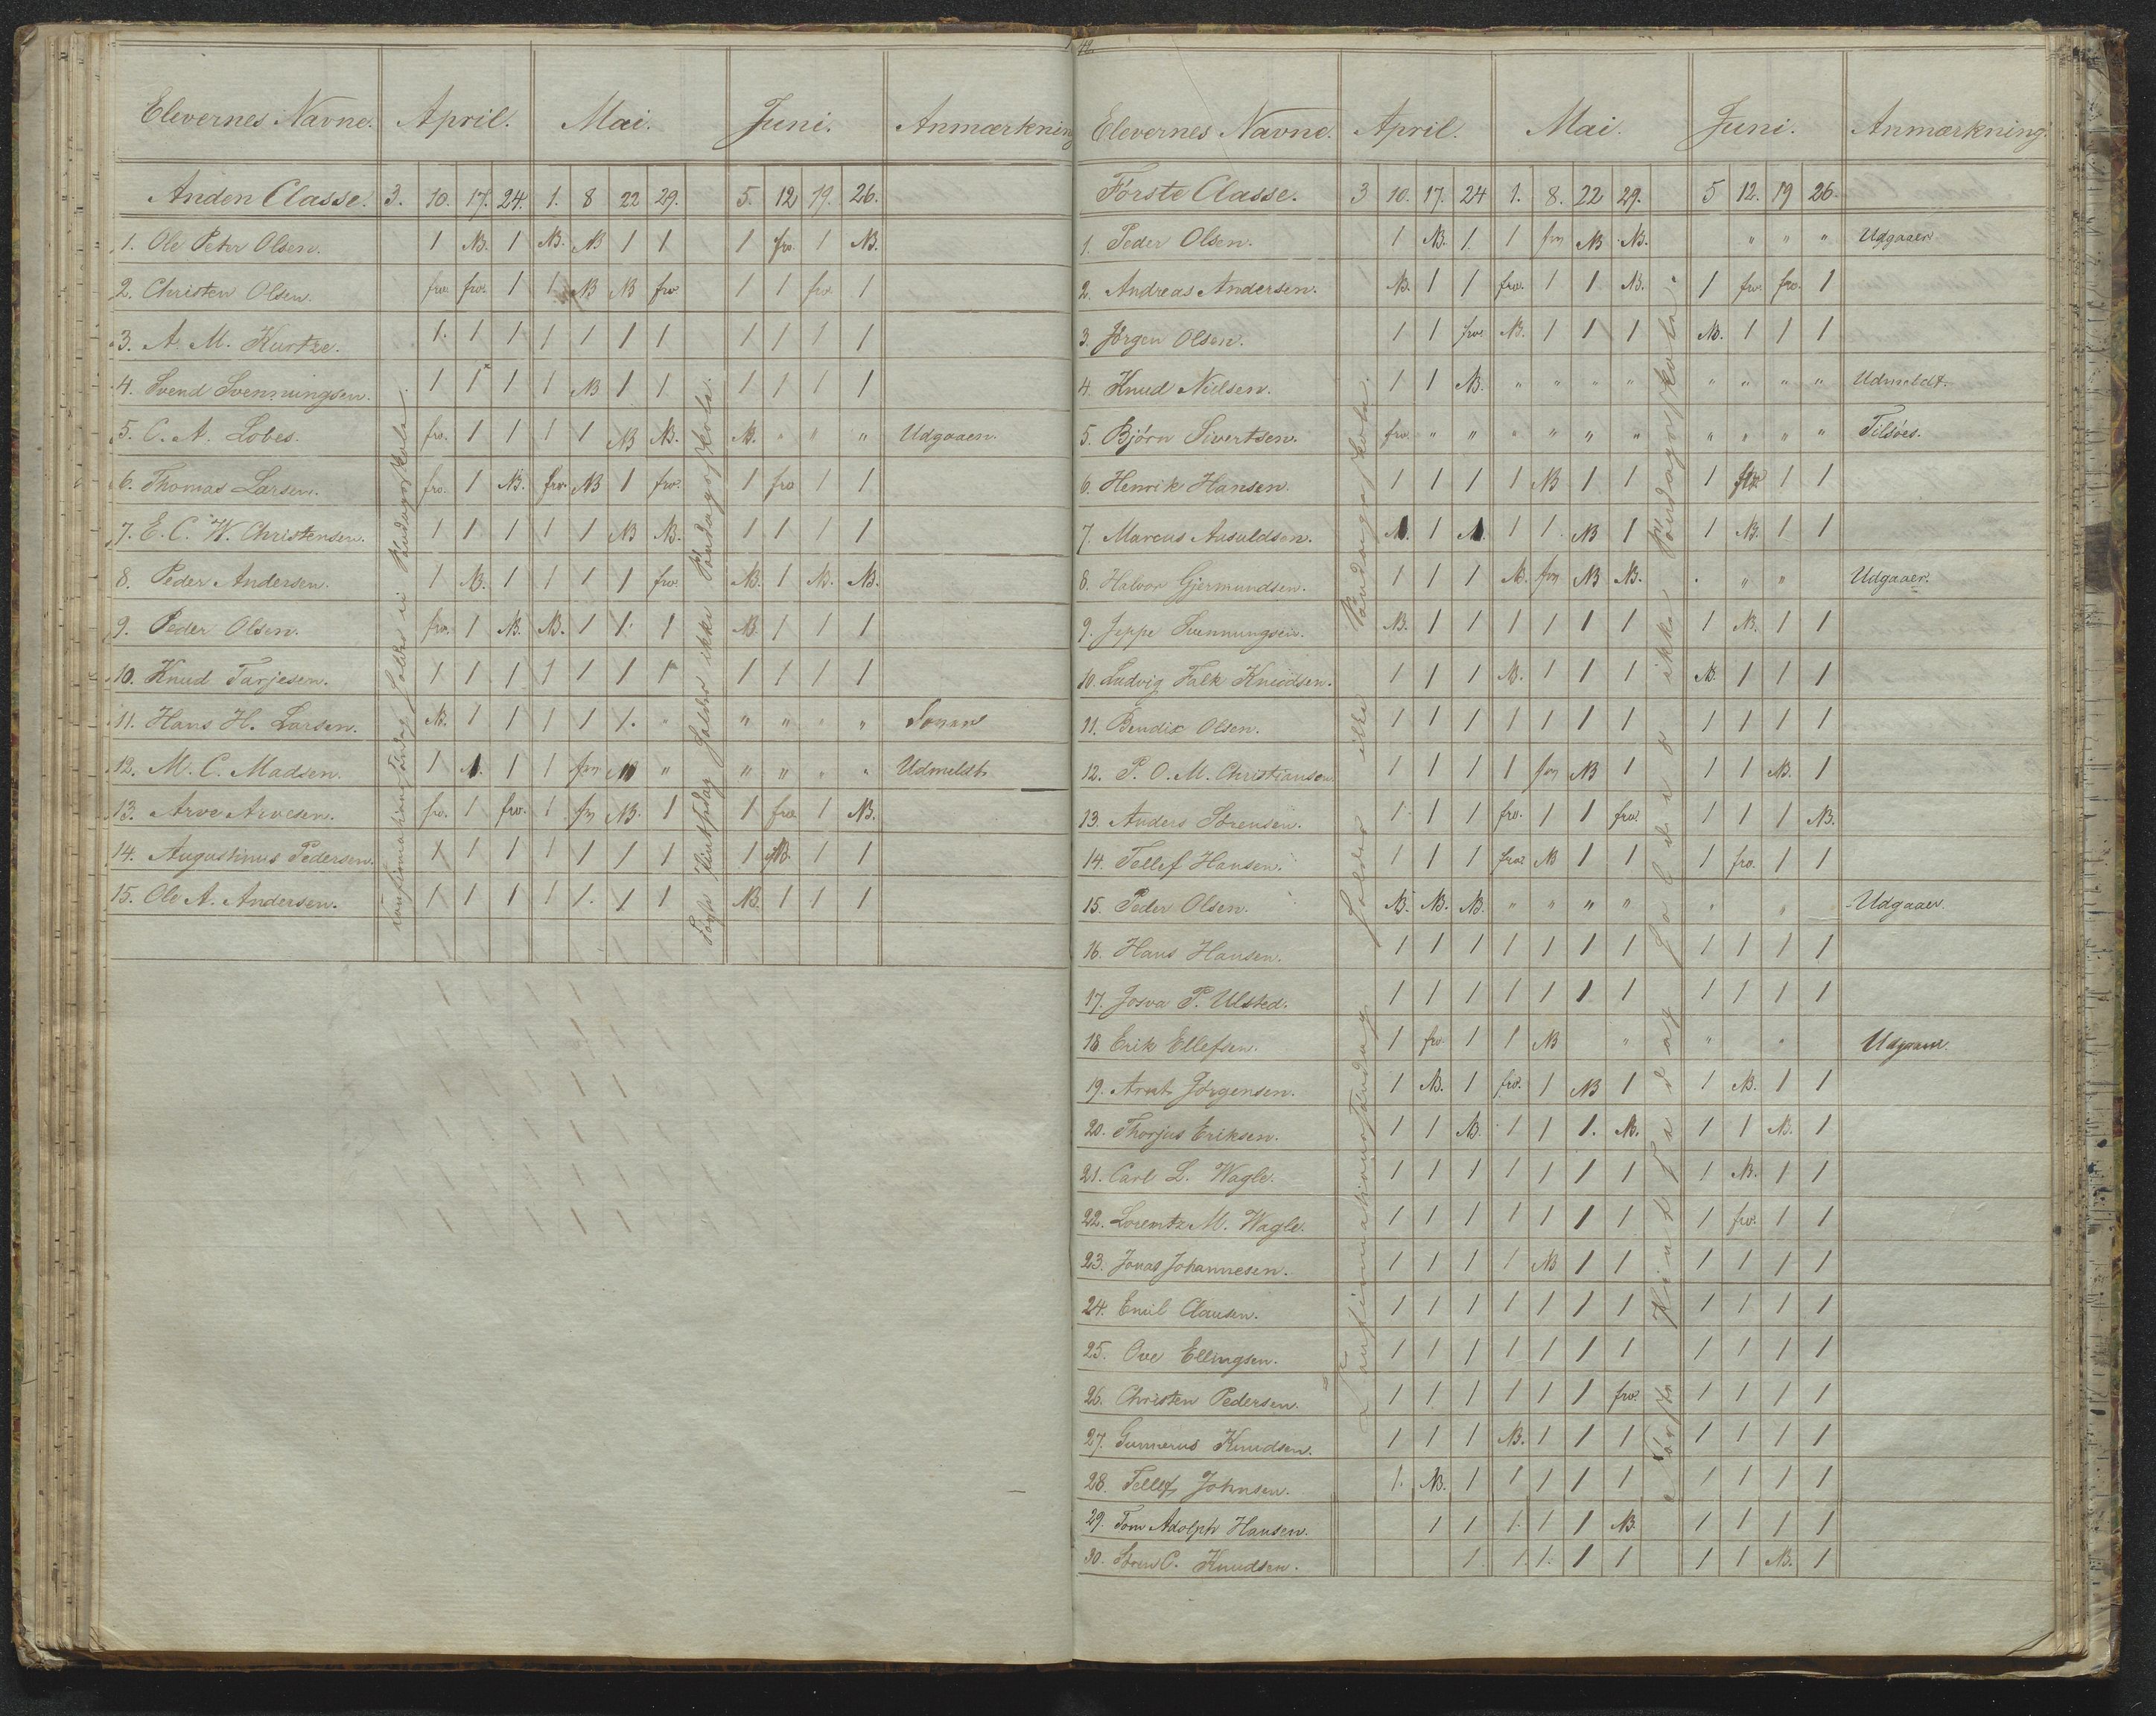 Elevernes Navne. April. Mai. Juni. Anmærkning
Anden Classe. 3. 10. 17. 24. 1. 8 22 29. 5. 12 19. 26.
1. Ole Peter Olsen. 1 NB. 1 NB. NB 1 1 1 fra. 1 NB.
2. Christen Olsen. fra. fra. 1 1 NB NB fra 1 1 fra. 1
3. A. M. Kurtze. 1. 1 1 1 1 1 1 1 1 1 1
4. Svend Svenningsen. 1 1 1 1 NB 1 1 1 1 1 1
5. C. A. Lobes. fra. 1 1 1 1 NB NB. NB. " " " Udgaaen.
6. Thomas Larsen. fra. 1 NB. fra. NB 1 fra. 1 fra 1 1
7. E. C. W. Christensen. 1 1 1 1 1 NB NB. 1 1 1 1
8. Peder Andersen. 1 NB. 1 1 1 1 fra. NB. 1 NB. NB.
9. Peder Olsen. fra. 1 NB. NB. 1 1. 1 NB. 1 1 1
10. Knud Tarjesen. 1 1 1 1 1 1 1 1 1 1 1
11. Hans H. Larsen. NB. 1 1 1 1 1. " " " " "
12. M. C. Madsen. 1 1 1 " " " " " Udmeldt
13. Arve Arvesen. fra. 1 fra. 1 NB. 1 1 fra 1 NB.
14. Augustinus Pedersen. 1 1 1 1 1 1 1 1 NB. 1 1
15. Ole A. Andersen. 1 1 1 1 1. 1 1 NB. 1 1 1
Confirmationssöndag holdes ei Söndagsskole.
Første Pintsedag holdes ikke Söndagsskole.
42.
Elevernes Navne. April. Mai. Juni. Anmærkning.
Förste Classe. 3 10. 17. 24 1. 8. 22 29. 5 12. 19 26.
1. Peder Olsen. 1 NB. 1. 1 NB NB. " " " Udgaaer
2. Andreas Andersen. NB. 1 1 fra. 1 1 NB. 1 fra. fra. 1
3. Jörgen Olsen. 1 1 fra NB. 1 1 1 NB. 1 1 1
4. Knud Nielsen. 1 1 NB. " " " " " " " " Udmeldt.
5. Björn Sivertsen. fra. " " " " " " " " " " Tilsöes.
6. Henrik Hansen. 1 1 1 1 NB 1 1 1 fra 1 1
7. Marcus Aasuldsen. 1 1 1 NB 1 1 NB. 1 1
8. Halvor Gjermundsen. 1 1 1 NB. NB NB. " " Udgaaer.
9. Jeppe Svennungsen. NB. 1 1 1 1 1 1 1 NB. 1 1
10. Ludvig Falk Knudsen. 1 1 1 NB. 1 1 1 NB. 1 1 1
11. Bendix Olsen. 1 1 1 1 1 1 1 1 1 1 1
12. P. O. M. Christiansen 1 1 1 1 NB 1 1 1 NB. 1
13. Anders Sörensen. 1 1 1 fra. 1 1 fra. 1 1 1 NB.
14. Tellef Hansen. 1 1 1 fra NB 1 1 1 fra. 1 1
15. Peder Olsen. NB. NB. NB. " " " " " " Udgaaer
16. Hans Hansen. 1 1 1 1 1 1 1 1 1 1 1
17. Josva P. Ulsted. 1 1 1 1 1 1 1 1 1 1 1
18. Erik Ellefsen. 1 fra. 1 1 NB " " " Udgaaer.
19. Arnt Jörgensen. 1 NB. 1 fra. 1 NB 1 1 NB. 1 1
20. Thorjus Eriksen. 1 1 NB. 1 1 1. NB. 1 1 NB. 1
21. Carl L. Wagle. 1 1 1 1 1 1 1 1 NB. 1 1
22. Lorentz M. Wagle. 1 1 1 1 1 1 1 1 fra. 1 1
23. Jonas Johannesen. 1 1 1 1 NB 1 1 1 1 1 1
24. Emil Clausen. 1 1 1 1 1 1 1 1 1 1 1
25. Ove Ellingsen. 1 1 1 1 1 1 1 1 1 1 1
26. Christen Pedersen. 1 1 1 1 1 1 fra. 1 1 1 1
27. Gunnerus Knudsen. 1 1 1 NB. 1 1 1 1 1 1 1
28. Tellef Johnsen. 1. NB. 1 1 1 1 1 1 1 1 1
29. Tom Adolph Hansen. 1 1 1. 1 1 NB. 1 1 1 1
30. Sören C. Knudsen. 1. 1. 1. 1 1 1 1 NB. 1
Confirmationssöndag holdes ikke Söndagsskole.
Förste Pintsedag holdes ikke Söndagsskole.